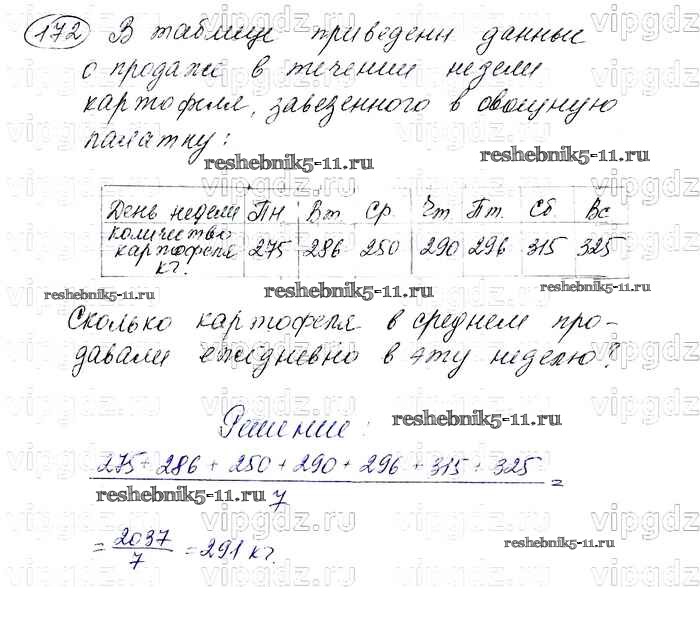 172 В таблице приведены данные
о продаже в течении недели
картофеля, завезенного в овощную
палатку:
reshebnik5-11.ru reshebnik5-11.ru
День недели Пн Вт Ср Чт Пт Сб Вс
количество картофеля кг. 275 286 250 290 296 315 325
reshebnik5-11.ru reshebnik5-11.ru reshebnik5-11.ru
Сколько картофеля в среднем про-
давали ежедневно в эту неделю?
Решение: reshebnik5-11.ru
275+286+250+290+296+315+325
reshebnik5-11.ru 7 =
= 2037/7 = 291 кг.
reshebnik5-11.ru
vipgdz.ru